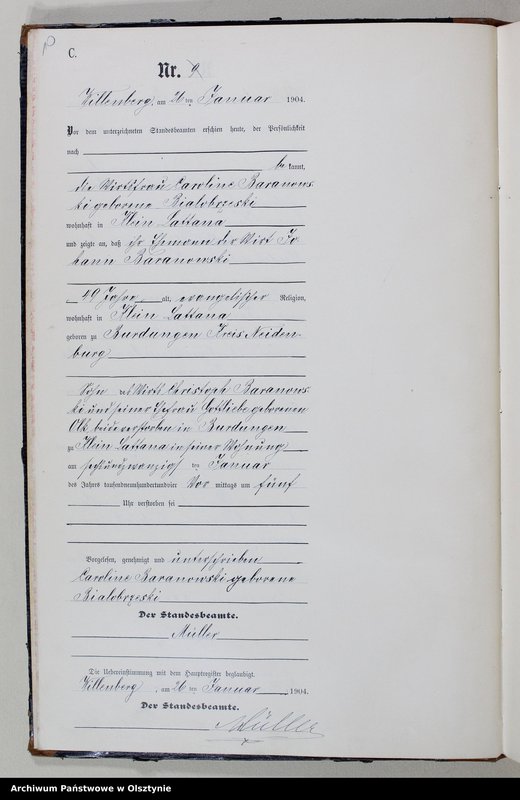 C.
Nr. 9
Willenberg, am 26 ten Januar 1904.
Vor dem unterzeichneten Standesbeamten erschien heute, der Persönlichkeit
nach
be kannt,
die Wirtsfrau Caroline Baranows-
ki geborene Bialobrzeski
wohnhaft in Klein Lattana
und zeigte an, daß ihr Ehemann der Wirt Jo-
hann Baranowski
49 Jahre alt, evangelischer Religion,
wohnhaft in Klein Lattana
geboren zu Burdungen Kreis Neiden-
burg
Sohn des Wirts Christoph Baranows-
ki und seiner Ehefrau Gottliebe geborenen
Olk beide verstorben in Burdungen
zu Klein Lattana in seiner Wohnung
am sechsundzwanzigsten Januar
des Jahres tausendneunhundertundvier Vor mittags um fünf
Uhr verstorben sei
Vorgelesen, genehmigt und unterschrieben
Caroline Baranowski geborene
Bialobrzeski
Der Standesbeamte.
Müller
Die Uebereinstimmung mit dem Hauptregister beglaubigt.
Willenberg, am 26 ten Januar 1904.
Der Standesbeamte.
Müller
Archiwum Państwowe w Olsztynie